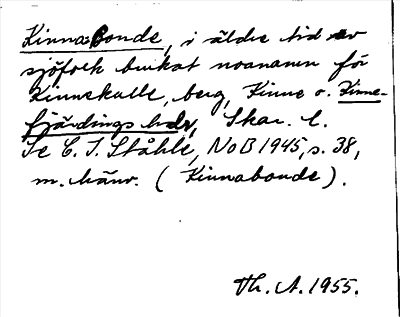 Kinnabonde, i äldre tid av
sjöfolk brukat noanamn för
Kinnekulle, berg, Kinne o. Kinne-
fjärdings hdr, Skar. l.
Se C. I. Ståhle, NoB 1945, s. 38,
m. hänv. (Kinnabonde).
Th. A. 1955.